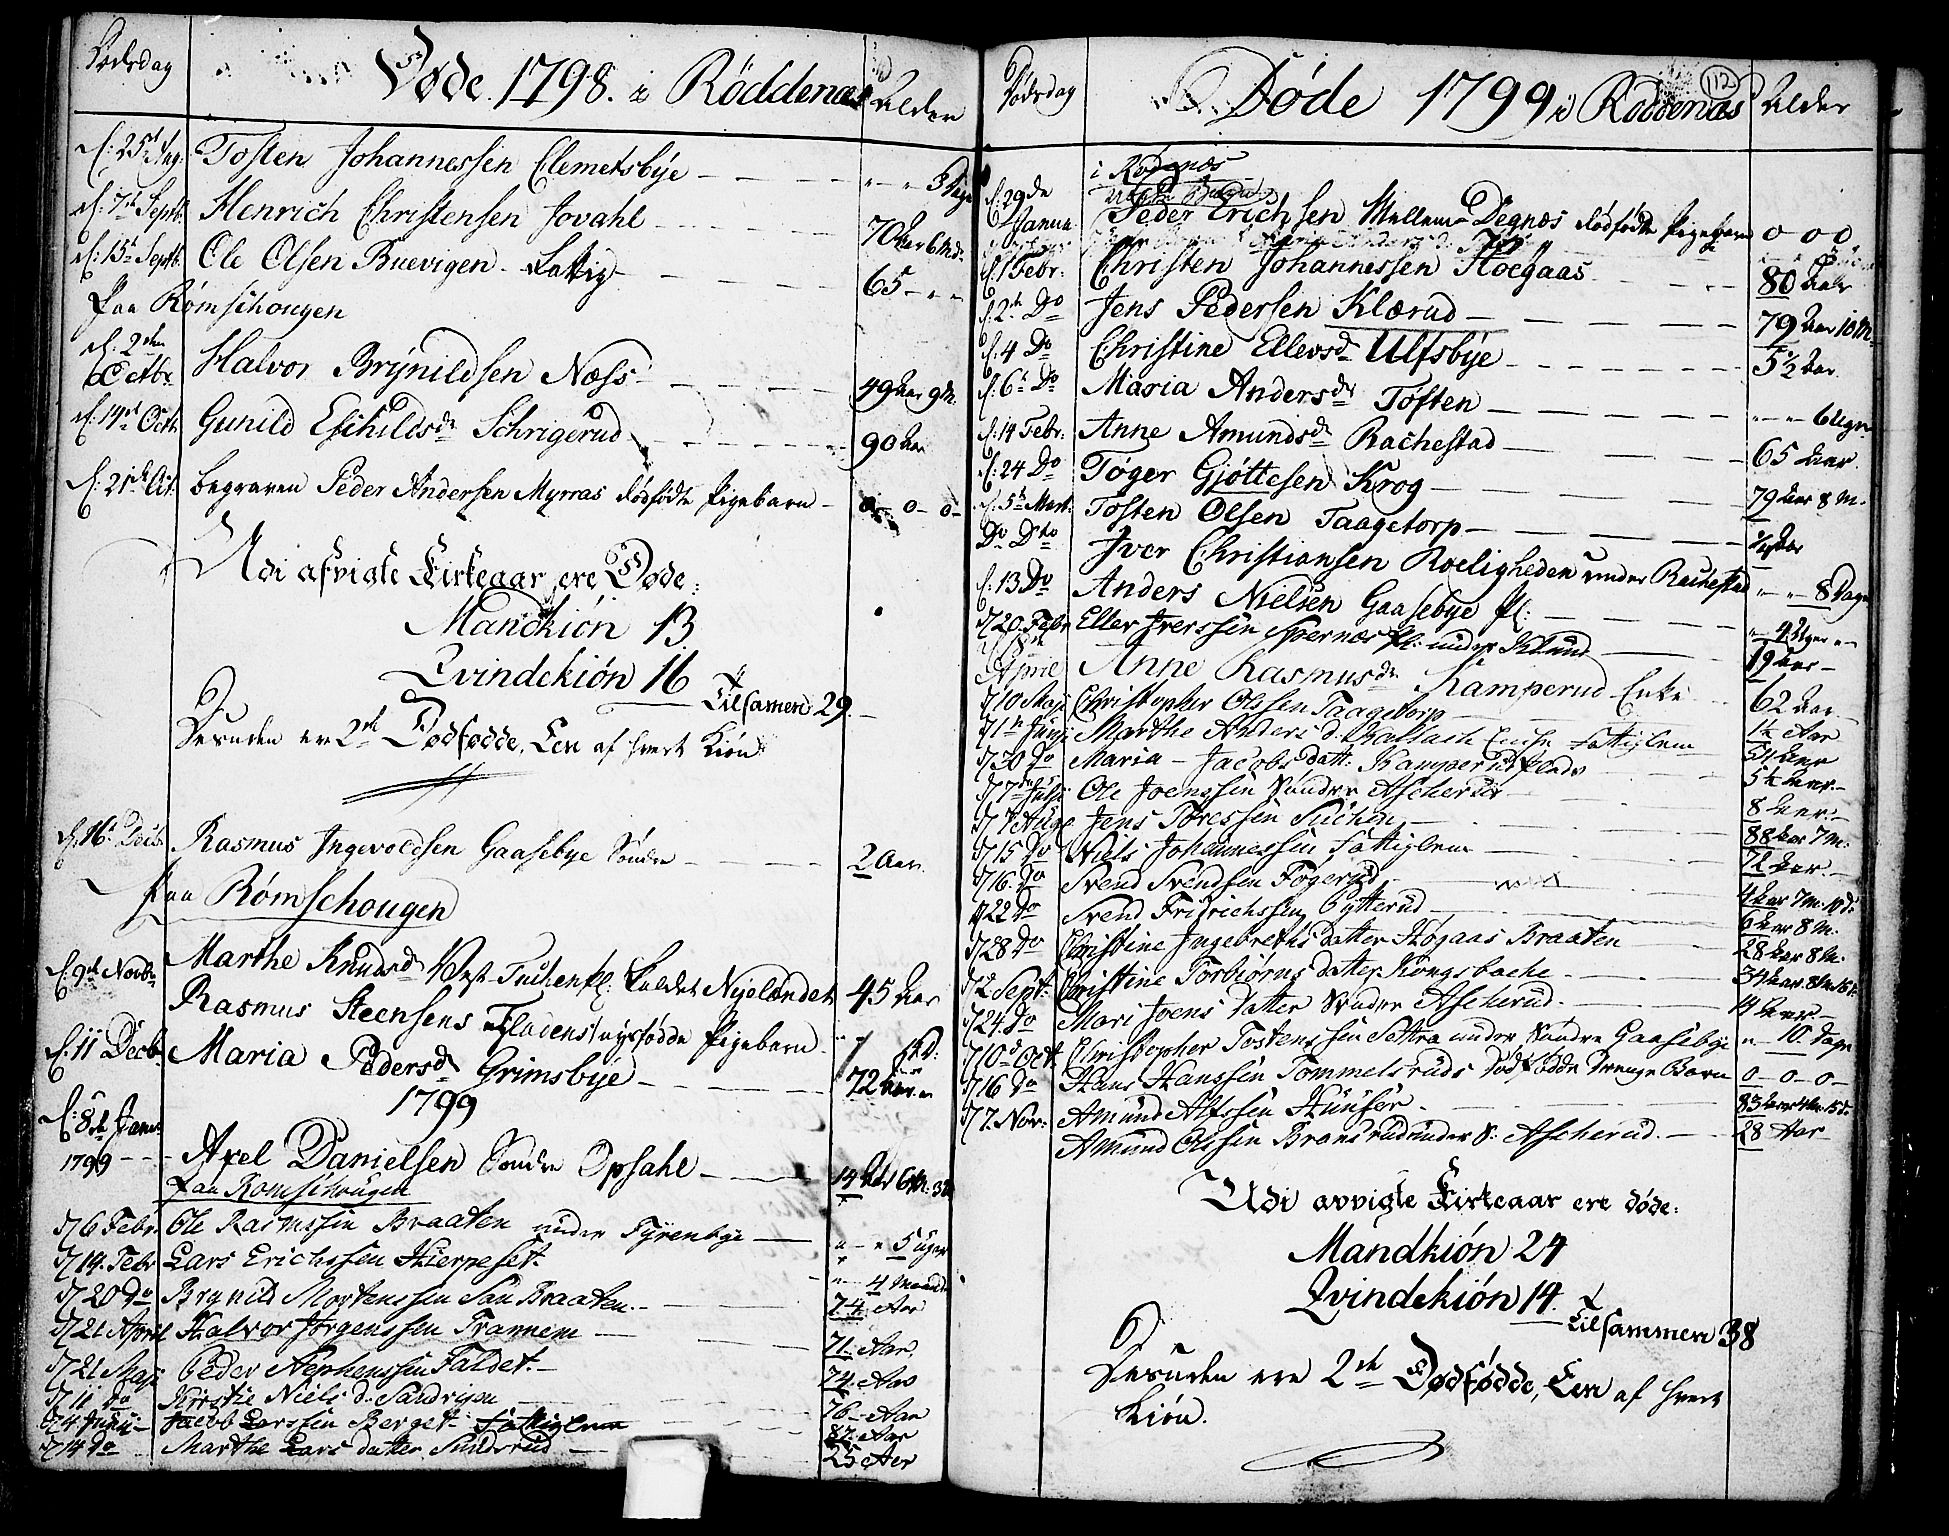 Dødsdag Døde 1798. i Röddenæs Alder
d: 25t Aug. Tosten Johannessen Clemetsbÿe 3 Dage
d: 7de Septb. Henrich Christensen Jovahl 70 Aar 6 Md.
d: 15de Septb. Ole Olsen Buevigen Fattig 65
Paa Rømschougen
d. 2den Octbr Halvor Brÿnildsen Næss 49 Aar 9 M.
d: 14de Octb. Gunild Eschildsdr Schrigerud 90 Aar
d: 21de Oct. begraven Peder Andersen Myrras dødfødte Pigebarn 0 - 0 - 0 -
Udi afvigte Kirkeaar ere Døde:
Mandkiön 13
Qvindekiön 16
Tilsamen 29.
Desuden ere 2de Dødfødde, Een af hvert Kiön
d. 16de Decb. Rasmus Ingevoldsen Gaasebye Söndre 2 Aar
Paa Rømschougen
d: 9de Novbr Marthe Knudsd Vest Tuckenpl: kaldet Nyelændet 45 Aar
Rasmus Steensens Fladens nyefødde Pigebarn
d: 11 Decb. Maria Pedersd Grimsbÿe 72 Aar
1799
d: 8de Janu. 1799 Axel Danielsen Søndre Opsahl 14 Aar 6 M. 3 d
Paa Romschougen
d 6 Febr. Ole Rasmssen Braaten under Tÿrenbye 5 uger
d 14. Febr Lars Erichssen Hierpeset. 4 Maaned
d 20 Do Brynild Mortenssen San Braaten. 74 Aar
d 21 April Halvor Jörgenssen Trannem 71 Aar.
d 21 Maji Peder Stephenssen Faldet. 74 Aar
d 11 Do Kirstie Niels d. Sandvigen 76 Aar
d 4 Junii Jacob Larssen Berget. Fattiglem 82 Aar
d 14 Do Marthe Lars datter Sundsrud 25 Aar
Dødsdag Döde 1799 i Röddenæs Alder
112
i Rødnæs
d: 29de Janua Peder Erichsen Mellem Degnæs dödfödte Pigebarn 0 0 0
d. 1 Febr: Christen Johannessen Höegaas 80 Aar
d: 2de Do Jens Pedersen Klærud 79 Aar 10 M.
d: 4 Do Christine Ellevsd Ulfsbÿe 5 ½ Aar
d: 6t Do Maria Andersdr Toften 6 Uger
d: 14 Febr. Anne Amundsdr Rachestad 65 Aar
d: 24 Do Töger Gjöttesen Krog 79 Aar 8 M.
d. 5t Mart. Tosten Olsen Taagetorp ¼ Aar
Do Dto Iver Christiansen Roeligheden under Rachestad 8 Dage
d: 13 Do Anders Nielsen Gaasebÿe Pl: 4 Uger
d 20 Febr Eller Iverssen Spernæs Pl: under Klund 19 Aar
d 8de April Anne Rasmusdr Kamperud Enke 62 Aar
d 10 Maji Christopher Olssen Taagetorp 1½ Aar
d 1te Junji Marthe Anders d. Enche Fattiglem
d 30 Do Maria Jacobs Datt: Kamperud Plads 5½ Aar
d 7de Julji Ole Joenssen Söndre Ascherud 8 Aar
d 7 Aug Jens Toressen Tuchen 88 Aar 7 M.
d 15 Do Niels Johannessen Fattiglem 72 Aar.
d 16. Do Svend Svendsen Fögerud 4 Aar 7 M. 10 d.
d 22 Do Svend Fridrichssen Ÿtterud 6 Aar 8 M.
d 28 Do Christine Ingebreths datter Högaas Braaten 28 Aar 8 M.
d 2 Sept. Christine Torbiörns datter Kongsbache 34 Aar 8 M.
d 24. Do Mari Joens Datter Söndre Ascherud. 14 Aar
d 10d Oct. Christopher Tostenssen Settra under Söndre Gaasebye 10 Dage
d 16 Do Hans Hanssen Tommelsruds Dödfödde Drenge Barn 0 - 0 - 0 -
d 7. Nov. Amund Alfssen Hunsör. 83 Aar 4 M. 15 d.
Amund Olssen Bransrud under S: Ascherud. 28 Aar
Udi avvigte Kirkeaar ere døde:
Mandkiön 24
Qvindekiön 14.
Tilsammen 38
Desuden ere 2de Dødfødde, Een af hvert
Kiön.